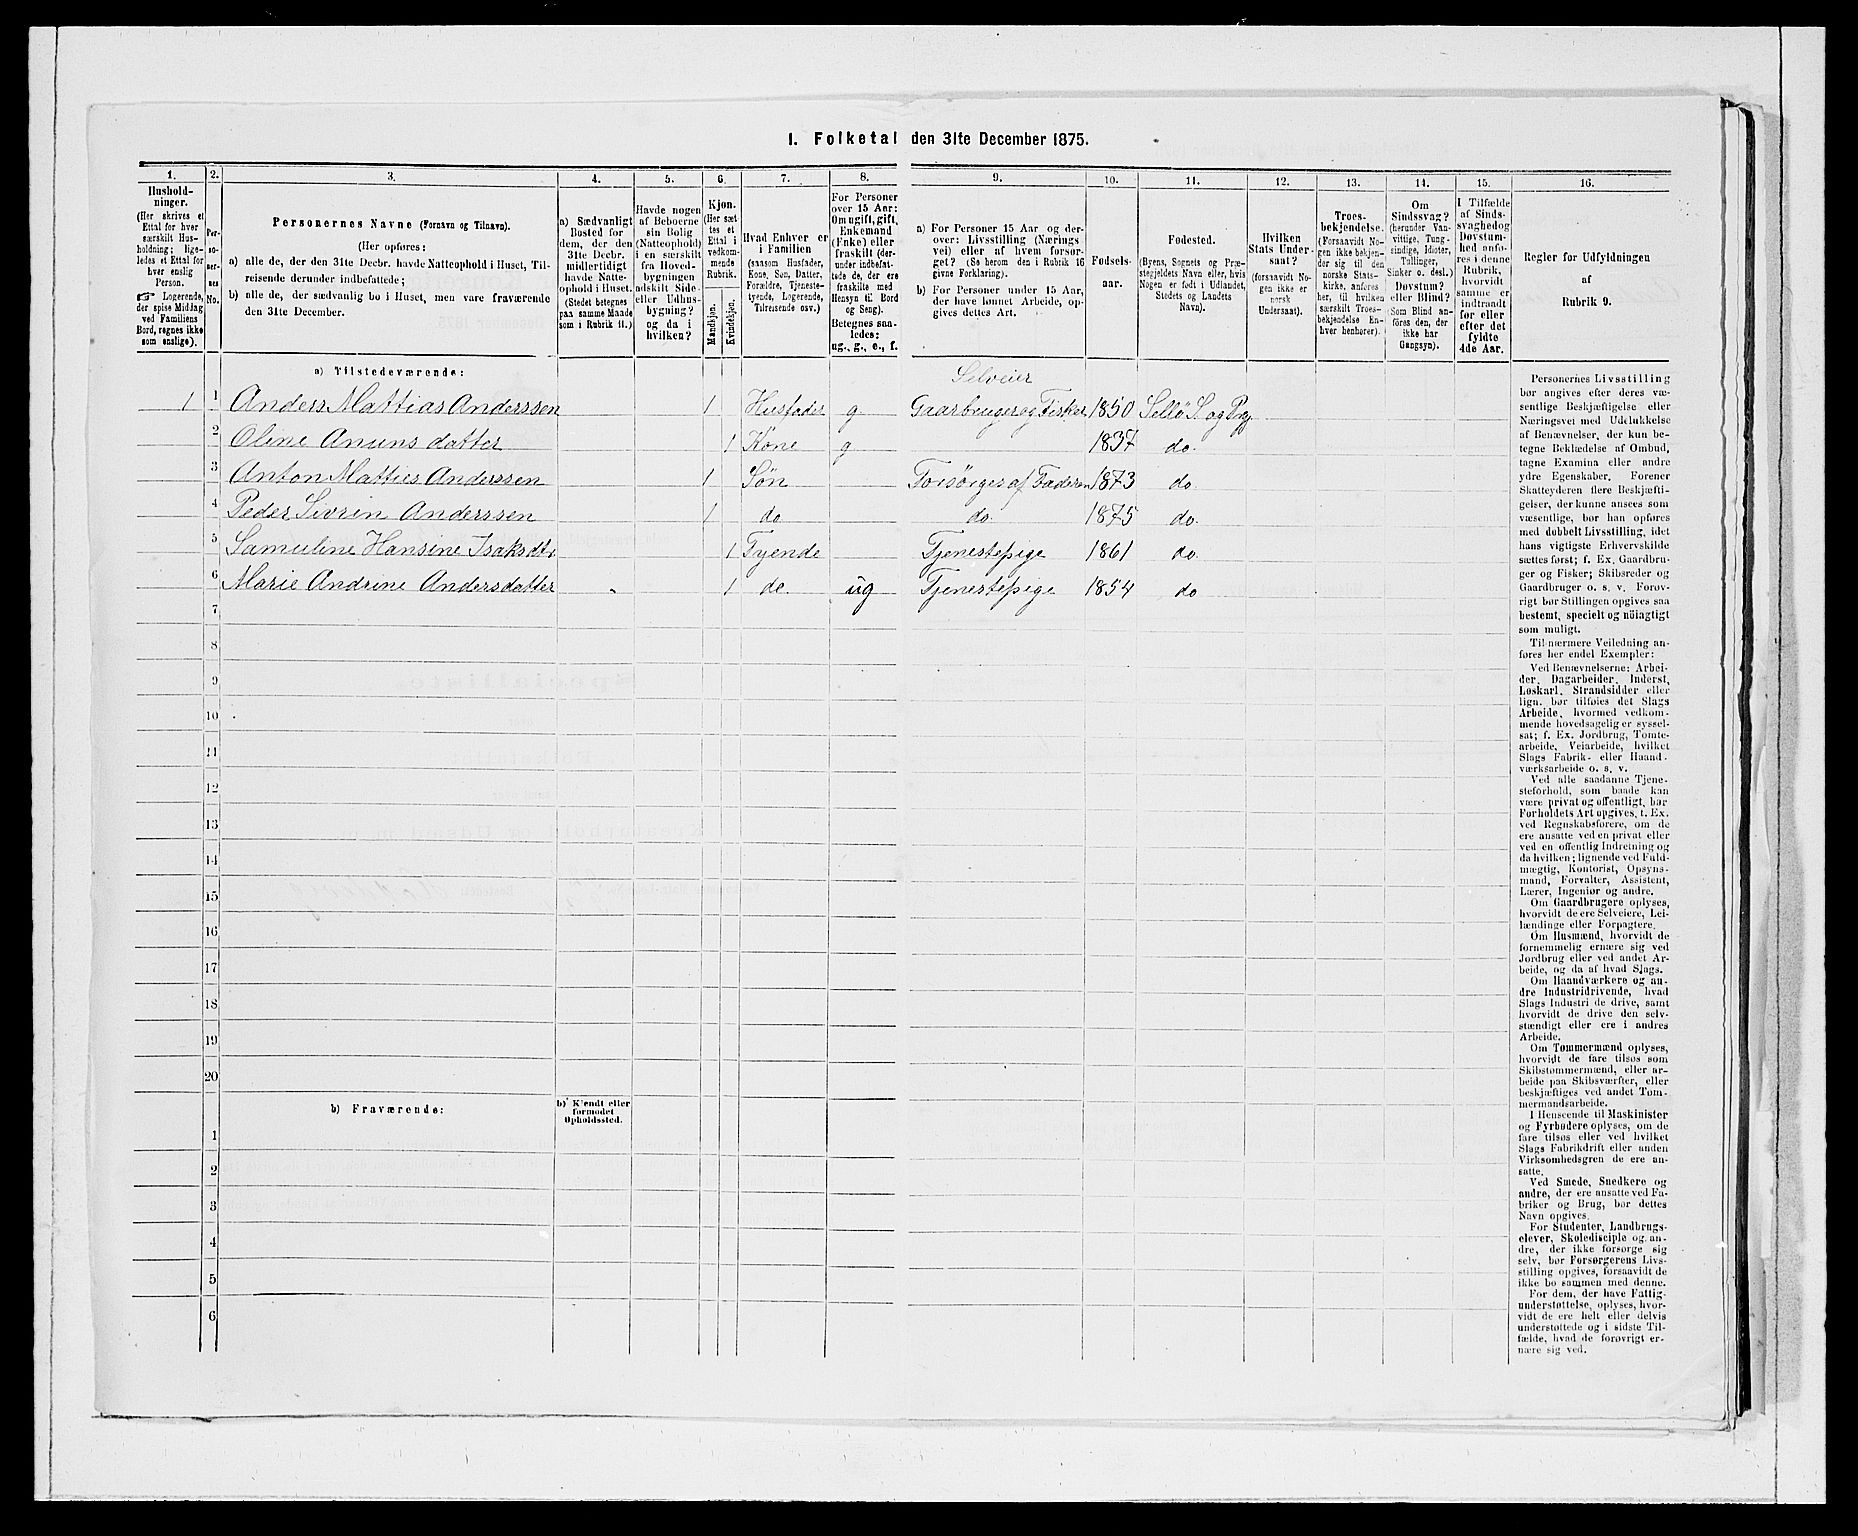 I. Folketal den 31te December 1875.
1. 2. 3. 4. 5. 6. 7. 8. 9. 10. 11. 12. 13. 14. 15. 16.
Hushold-
ninger.
(Her skrives et
Ettal for hver
særskilt Hus-
holdning; lige-
ledes et Ettal for
hver enslig
Person.
☞ Logerende,
der spise Middag
ved Familiens
Bord, regnes ikke
som enslige).
Per-
so-
ner-
nes
No.
Personernes Navne (Fornavn og Tilnavn).
(Her opføres:
a) alle de, der den 31te Decbr. havde Natteophold i Huset, Til-
reisende derunder indbefattede;
b) alle de, der sædvanlig bo i Huset, men vare fraværende
den 31te December.
a) Sædvanligt
Bosted for
dem, der den
31te Decbr.
midlertidigt
havde Natte-
ophold i Huset.
(Stedet betegnes
paa samme Maade
som i Rubrik 11.)
Havde nogen
af Beboerne
sin Bolig
(Natteophold)
i en særskilt
fra Hoved-
bygningen
adskilt Side-
eller Udhus-
bygning?
og da i
hvilken?
Kjøn.
(Her sæt-
tes et
Ettal i
vedkom-
mende
Rubrik.
Mandkjøn.
Kvindekjøn.
Hvad Enhver er
i Familien
(saasom Husfader,
Kone, Søn, Datter,
Forældre, Tjeneste-
tyende, Logerende,
Tilreisende osv.)
For Personer
over 15 Aar:
Om ugift, gift,
Enkemand
(Enke) eller
fraskilt (der-
under indbefat-
tede de, der ere
fraskilte med
Hensyn til Bord
og Seng).
Betegnes saa-
ledes:
ug., g., e., f.
a) For Personer 15 Aar og der-
over: Livsstilling (Nærings-
vei) eller af hvem forsør-
get? (Se herom den i Rubrik 16
givne Forklaring).
b) For Personer under 15 Aar,
der have lønnet Arbeide, op-
gives dettes Art.
Fødsels-
aar.
Fødested.
(Byens, Sognets og Præ-
stegjeldets Navn eller, hvis
Nogen er født i Udlandet,
Stedets og Landets
Navn).
Hvilken
Stats Under-
saat?
(forsaavidt No-
gen ikke er
norsk
Undersaat).
Troes-
bekjendelse.
(Forsaavidt No-
gen ikke bekjen-
der sig til den
norske Stats-
kirke, anføres
her, til hvilken
særskilt Troes-
bekjendelse En-
hver henhører).
Om
Sindssvag?
(herunder Van-
vittige, Tung-
sindige, Idioter,
Tullinger,
Sinker o. desl.)
Døvstum?
eller Blind?
(Som Blind an-
føres den, der
ikke har
Gangsyn).
I Tilfælde
af Sinds-
svaghed og
Døvstum-
hed anfø-
res i denne
Rubrik,
hvorvidt
samme er
indtraadt
før eller
efter det
fyldte
4de Aar.
Regler for Udfyldningen
af
Rubrik 9.
a) Tilstedeværende:
Selveier
1 1 Anders Mattias Anderssen 1 Husfader g Gaarbruger og Fisker 1850 Sellö S. og Prg
2 Oline Anuns datter 1 Kone g 1837 do.
3 Anton Matties Anderssen 1 Søn Forsörges af Faderen 1873 do
4 Peder Sivrin Anderssen 1 do do. 1875 do.
5 Samuline Hansine Isaksdt. 1 Tyende Tjenestepige 1861 do.
6 Marie Andrine Andersdatter 1 do. ug Tjenestepige 1854 do
7
8
9
10
11
12
13
14
15
16
17
18
19
20
b) Fraværende:
b) Kjendt eller
formodet
Opholdssted.
1
2
3
4
5
6
Personernes Livsstilling
bør angives efter deres væ-
sentlige Beskjæftigelse eller
Næringsvei med Udelukkelse
af Benævnelser, der kun be-
tegne Beklædelse af Ombud,
tagne Examina eller andre
ydre Egenskaber. Forener
Skatteyderen flere Beskjæfti-
gelser, der kunne ansees som
væsentlige, bør han opføres
med dobbelt Livsstilling, idet
hans vigtigste Erhvervskilde
sættes først; f. Ex. Gaardbru-
ger og Fisker; Skibsreder og
Gaardbruger o. s. v. Forøv-
rigt bør Stillingen opgives saa
bestemt, specielt og nöiagtigt
som muligt.
Til nærmere Veiledning an-
føres her endel Exempler:
Ved Benævnelserne: Arbei-
der, Dagarbeider, Inderst,
Løskarl, Strandsidder eller
lign. bør tilføies det Slags
Arbeide, hvormed vedkom-
mende hovedsagelig er syssel-
sat; f. Ex. Jordbrug, Tomte-
arbeide, Veiarbeide, hvilket
Slags Fabrik- eller Haand-
værksarbeide o. s. v.
Ved alle saadanne Tjene-
steforhold, som baade kan
være privat og offentligt, bør
Forholdets Art opgives, t. Ex.
ved Regnskabsførere, om de
ere ansatte ved en privat eller
ved en offentlig Indretning og
da hvilken; lignende ved Fuld-
mægtig, Kontorist, Opsyns-
mand, Forvalter, Assistent,
Lærer, Ingeniør og andre.
Om Gaardbrugere oplyses,
hvorvidt de ere Selveiere, Lei-
lændinge eller Forpagtere.
Om Husmænd, hvorvidt de
fornemmelig ernære sig ved
Jordbrug eller ved andet Ar-
beide, og da af hvad Slags.
Om Haandværkere og an-
dre Industridrivende, hvad
Slags Industri de drive, samt
hvorvidt de drive den selv-
stændigt eller ere i andres
Arbeide.
Om Tømmermænd oplyses,
hvorvidt de fare tilsøs som
Skibstømmermænd, eller ar-
beide paa Skibsværfter, eller
beskjæftiges ved andet Tøm-
mermandsarbeide.
I Henseende til Maskinister
og Fyrbødere oplyses, om de
fare tilsøs eller ved hvilket
Slags Fabrikdrift eller anden
Virksomhedsgren de ere an-
satte.
Ved Smede, Snedkere og
andre, der ere ansatte ved Fa-
briker og Brug, bør dettes
Navn opgives.
For Studenter, Landbrugs-
elever, Skoledisciple og an-
dre, der ikke forsørge sig
selv, bør Forsørgerens Livs-
stilling opgives, forsaavidt de
ikke bo sammen med denne.
For dem, der have Fattig-
understøttelse, oplyses, hvor-
vidt de ere helt eller delvis
understøttede og i sidste Til-
fælde, hvad de forøvrigt er-
nære sig ved.